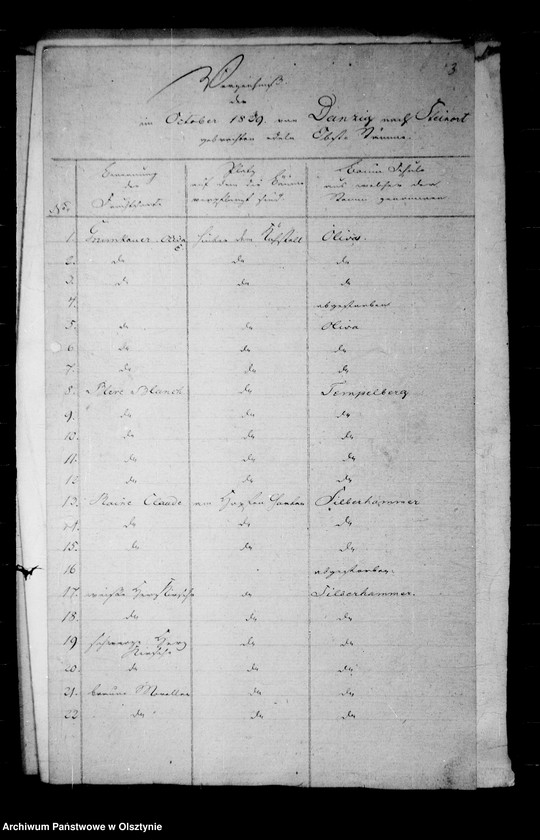 3
Verzeichniß
der
im October 1839 von Danzig nach Steinort
gebrachten edeln Obst Bäume
No. Benennung der Fruchtsorte Platz auf dem die Bäume verpflanzt sind Baum Schule aus welcher der Baum genommen
1. hinter dem Oliva.
2. do do do
3. do do do
4. abgestorben
5. do do Oliva
6 do do do
7. do do do
8. Blanch do Tempelberg
9. do do do
10. do do do
11. do do do
12 do do do
13. Reine Claude am Hopfen Garten Silberhammer
14. do do do
15. do do do
16 abgestorben.
17. weiße Herzkirsche do Silberhammer.
18. do do do
19 schwarze Herz Kirsche do do
20. do do do
21. braune Morelle do do
22 do do do
Archiwum Państwowe w Olsztynie